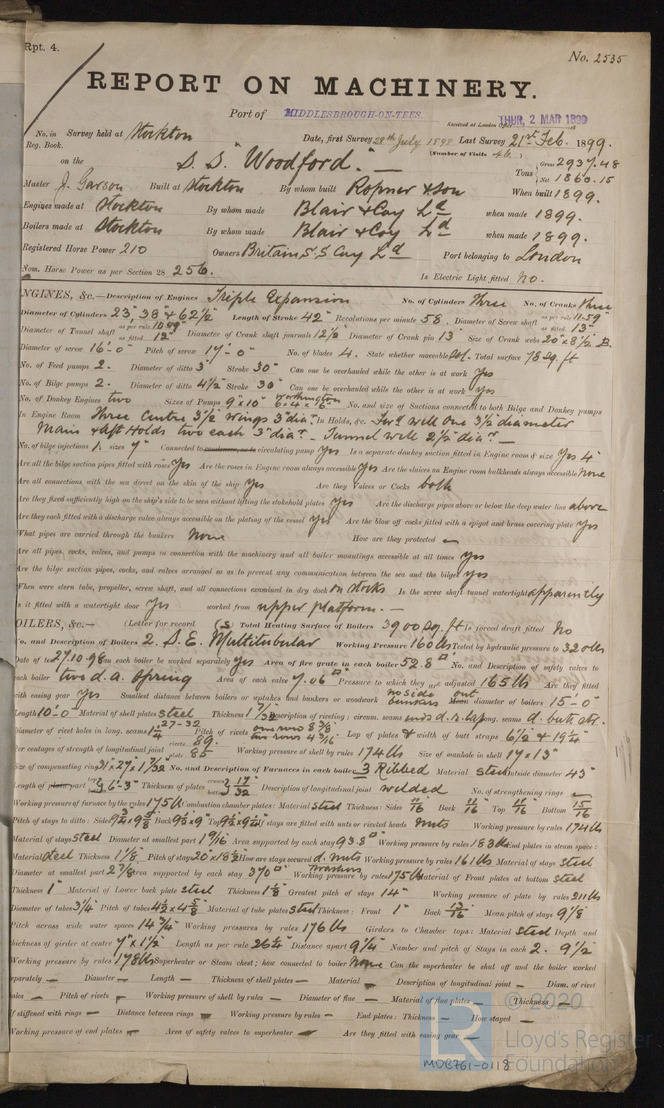 Rpt. 4.
No. 2535
REPORT ON MACHINERY.
Port of MIDDLESBROUGH-ON-TEES. Received at London Office THUR. 2 MAR 1899
No. in Survey held at Stockton Date, first Survey 28th July 1898 Last Survey 21st Feb. 1899.
Reg. Book. (Number of Visits 46.)
on the S.S. "Woodford." Tons Gross 2937.48
Net 1860.15
Master J. Garson Built at Stockton By whom built Ropner & Son When built 1899.
Engines made at Stockton By whom made Blair & Coy Ld when made 1899.
Boilers made at Stockton By whom made Blair & Coy Ld when made 1899.
Registered Horse Power 210 Owners Britain S.S. Coy Ld Port belonging to London
Nom. Horse Power as per Section 28 256. Is Electric Light fitted No.
ENGINES, &c.—Description of Engines Triple Expansion No. of Cylinders Three No. of Cranks three
Diameter of Cylinders 23" 38" & 62½ Length of Stroke 42" Revolutions per minute 58. Diameter of Screw shaft as per rule 11.59" as fitted 13"
Diameter of Tunnel shaft as per rule 10.89" as fitted 12" Diameter of Crank shaft journals 12½ Diameter of Crank pin 13" Size of Crank webs 20" x 8½ B.
Diameter of screw 16'-0" Pitch of screw 17'-0" No. of blades 4. State whether moveable Sol. Total surface 78 sq. ft
No. of Feed pumps 2. Diameter of ditto 3" Stroke 30" Can one be overhauled while the other is at work Yes
No. of Bilge pumps 2. Diameter of ditto 4½ Stroke 30" Can one be overhauled while the other is at work Yes
No. of Donkey Engines two Sizes of Pumps 9" x 10" Worthington 6 x 4 x 6" No. and size of Suctions connected to both Bilge and Donkey pumps
In Engine Room Three Centre 3½ wings 3" diar. In Holds, &c. For'd well One 3½ diameter
Main & Aft Holds two each 3" diar. — Tunnel well 2½ diar. —
No. of bilge injections 1. sizes 7" Connected to condenser, or to circulating pump Yes Is a separate donkey suction fitted in Engine room & size Yes 4"
Are all the bilge suction pipes fitted with roses Yes Are the roses in Engine room always accessible Yes Are the sluices on Engine room bulkheads always accessible None
Are all connections with the sea direct on the skin of the ship Yes Are they Valves or Cocks both
Are they fixed sufficiently high on the ship's side to be seen without lifting the stokehold plates Yes Are the discharge pipes above or below the deep water line above
Are they each fitted with a discharge valve always accessible on the plating of the vessel Yes Are the blow off cocks fitted with a spigot and brass covering plate Yes
What pipes are carried through the bunkers None How are they protected —
Are all pipes, cocks, valves, and pumps in connection with the machinery and all boiler mountings accessible at all times Yes
Are the bilge suction pipes, cocks, and valves arranged so as to prevent any communication between the sea and the bilges Yes
When were stern tube, propeller, screw shaft, and all connections examined in dry dock On stocks Is the screw shaft tunnel watertight apparently
Is it fitted with a watertight door Yes worked from upper platform. —
BOILERS, &c.— (Letter for record (S) Total Heating Surface of Boilers 3900 sq. ft Is forced draft fitted No
No. and Description of Boilers 2. S.E. Multitubular Working Pressure 160 lbs Tested by hydraulic pressure to 320 lbs
Date of test 27.10.98 Can each boiler be worked separately Yes Area of fire grate in each boiler 52.8 □' No. and Description of safety valves to
each boiler two d.a. Spring Area of each valve 7.06 □" Pressure to which they are adjusted 165 lbs Are they fitted
with easing gear Yes Smallest distance between boilers or uptakes and bunkers or woodwork no side bunkers Mean out diameter of boilers 15'-0"
Length 10'-0" Material of shell plates Steel Thickness 1 7/32 Description of riveting: circum. seams ends d. r. lap long. seams d. butt str.
Diameter of rivet holes in long. seams 1¼ Pitch of rivets Lap of plates or width of butt straps 6½ & 19¼
Per centages of strength of longitudinal joint rivets 89. plate 85 Working pressure of shell by rules 174 lbs Size of manhole in shell 17" x 13"
Size of compensating ring 31" x 27" x 1 7/32 No. and Description of Furnaces in each boiler 3 Ribbed Material steel Outside diameter 43"
Length of plain part 6'-3" Thickness of plates 17/32 Description of longitudinal joint welded No. of strengthening rings —
Working pressure of furnace by the rules 175 lb Combustion chamber plates: Material steel Thickness: Sides 11/16 Back 11/16 Top 11/16 Bottom 15/16
Pitch of stays to ditto: Sides 9¾ x 9⅝ Back 9½ x 9" Top 9½ x 9¼ If stays are fitted with nuts or riveted heads Nuts Working pressure by rules 174 lbs
Material of stays Steel Diameter at smallest part 1 9/16 Area supported by each stay 93.8 □" Working pressure by rules 183 lbs End plates in steam space:
Material steel Thickness 1⅛ Pitch of stays 20" x 18½ How are stays secured d. nuts washers Working pressure by rules 161 lbs Material of stays steel
Diameter at smallest part 2⅞ Area supported by each stay 370 □" Working pressure by rules 175 lbs Material of Front plates at bottom steel
Thickness 1" Material of Lower back plate steel Thickness 1⅛ Greatest pitch of stays 14" Working pressure of plate by rules 211 lbs
Diameter of tubes 3¼ Pitch of tubes 4½ x 4⅝ Material of tube plates Steel Thickness: Front 1" Back 13/16 Mean pitch of stays 9⅛
Pitch across wide water spaces 14¾" Working pressures by rules 176 lbs Girders to Chamber tops: Material Steel Depth and
thickness of girder at centre 7" x 1½ Length as per rule 26¼ Distance apart 9¼ Number and pitch of Stays in each 2. 9½
Working pressure by rules 178 lbs Superheater or Steam chest; how connected to boiler None Can the superheater be shut off and the boiler worked
separately — Diameter — Length — Thickness of shell plates — Material — Description of longitudinal joint — Diam. of rivet
holes — Pitch of rivets — Working pressure of shell by rules — Diameter of flue — Material of flue plates — Thickness —
If stiffened with rings — Distance between rings — Working pressure by rules — End plates: Thickness — How stayed —
Working pressure of end plates — Area of safety valves to superheater — Are they fitted with easing gear —
© 2020
Lloyd's Register
Foundation
MOB761-0118